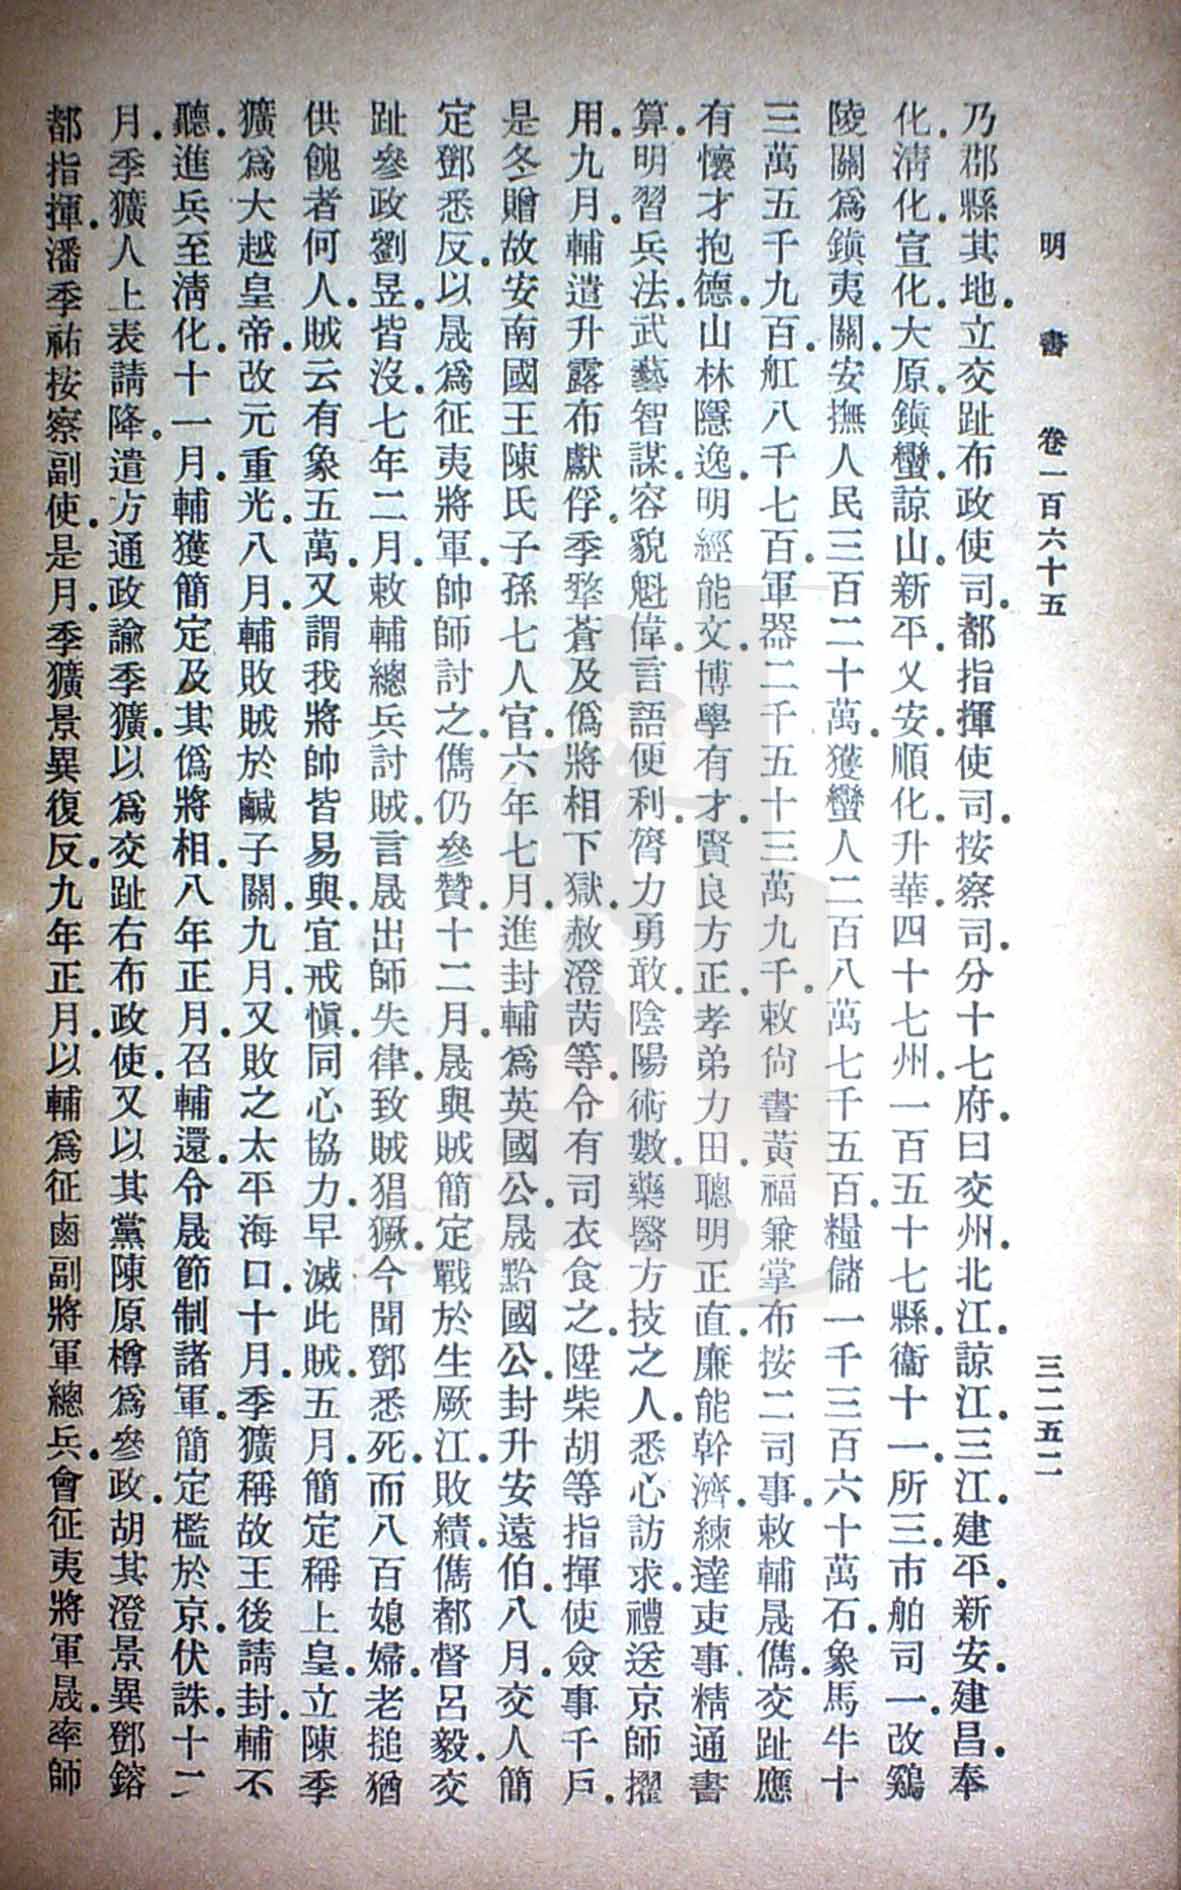 明 書 卷一百六十五 三二五二
乃郡縣其地．立交趾布政使司．都指揮使司．按察司．分十七府．曰交州．北江．諒江．三江．建平．新安．建昌．奉
化．淸化．宣化．大原．鎮蠻．諒山．新平．乂安．順化．升華．四十七州．一百五十七縣．衞十一．所三．市舶司一．改雞
陵關爲鎮夷關．安撫人民三百二十萬．獲蠻人二百八萬七千五百．糧儲一千三百六十萬石．象馬牛十
三萬五千九百．舡八千七百．軍器二千五十三萬九千．敕尙書黃福兼掌布按二司事．敕輔晟儁．交趾應
有懷才抱德．山林隱逸．明經能文．博學有才．賢良方正．孝弟力田．聰明正直．廉能幹濟．練達吏事．精通書
算．明習兵法．武藝智謀．容貌魁偉．言語便利．膂力勇敢．陰陽術數．藥醫方技之人．悉心訪求．禮送京師擢
用．九月．輔遣升露布獻俘．季犛蒼及僞將相下獄．赦澄芮等．令有司衣食之．陞柴胡等指揮使僉事千戶．
是冬．贈故安南國王陳氏子孫七人官．六年七月．進封輔爲英國公．晟黔國公．封升安遠伯．八月．交人簡
定鄧悉反．以晟爲征夷將軍．帥師討之．儁仍參贊．十二月．晟與賊簡定戰於生厥江．敗績．儁都督呂毅．交
趾參政劉昱．皆沒．七年二月．敕輔總兵討賊．言晟出師失律．致賊猖獗．今聞鄧悉死．而八百媳婦．老撾猶
供餽者何人．賊云有象五萬．又謂我將帥皆易與．宜戒愼．同心協力．早滅此賊．五月．簡定稱上皇．立陳季
獷爲大越皇帝．改元重光．八月．輔敗賊於鹹子關．九月．又敗之太平海口．十月．季獷稱故王後請封．輔不
聽．進兵至淸化．十一月．輔獲簡定及其僞將相．八年正月．召輔還．令晟節制諸軍．簡定檻於京．伏誅．十二
月．季獷人上表請降．遣方通政諭季獷．以爲交趾右布政使．又以其黨陳原樽爲參政．胡其澄景異鄧鎔
都指揮．潘季祐按察副使．是月．季獷景異復反．九年正月．以輔爲征鹵副將軍總兵．會征夷將軍晟．率師